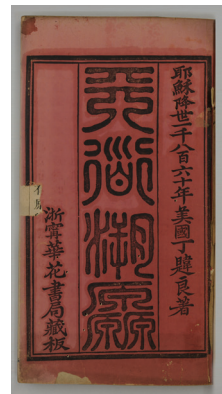 耶穌降世一千八百六十年美國丁韙良著
天道溯原
浙寧華花書局藏板